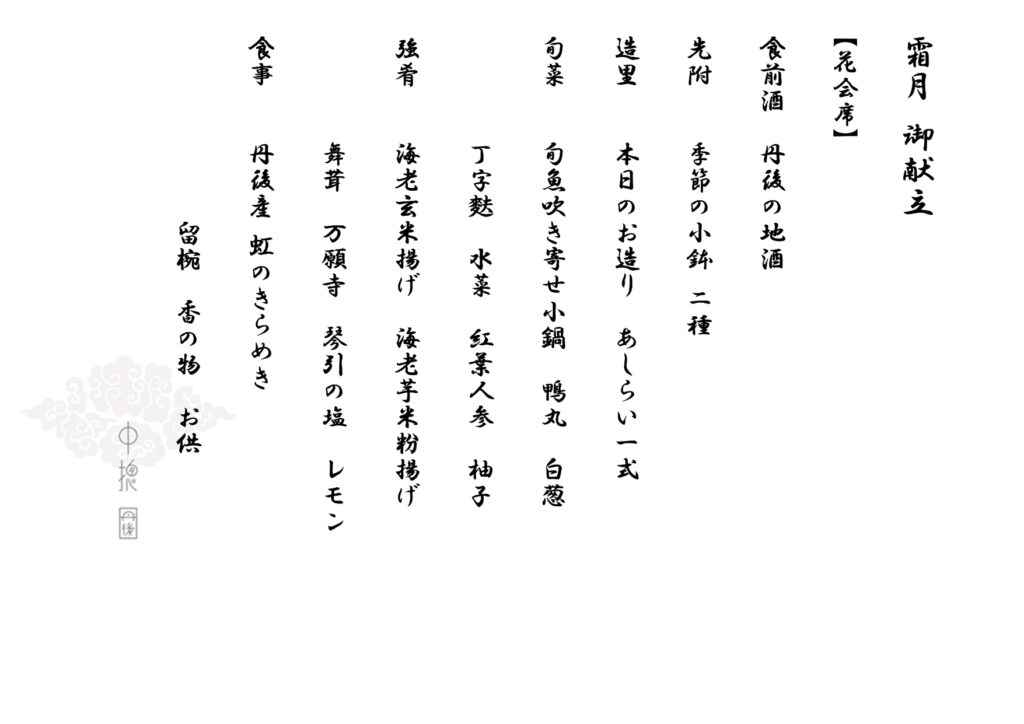 霜月 御献立
【花会席】
食前酒 丹後の地酒
先附 季節の小鉢 二種
造里 本日のお造り あしらい一式
旬菜 旬魚吹き寄せ小鍋 鴨丸 白葱
丁字麩 水菜 紅葉人参 柚子
強肴 海老玄米揚げ 海老芋米粉揚げ
舞茸 万願寺 琴引の塩 レモン
食事 丹後産 虹のきらめき
留椀 香の物 お供
丹後